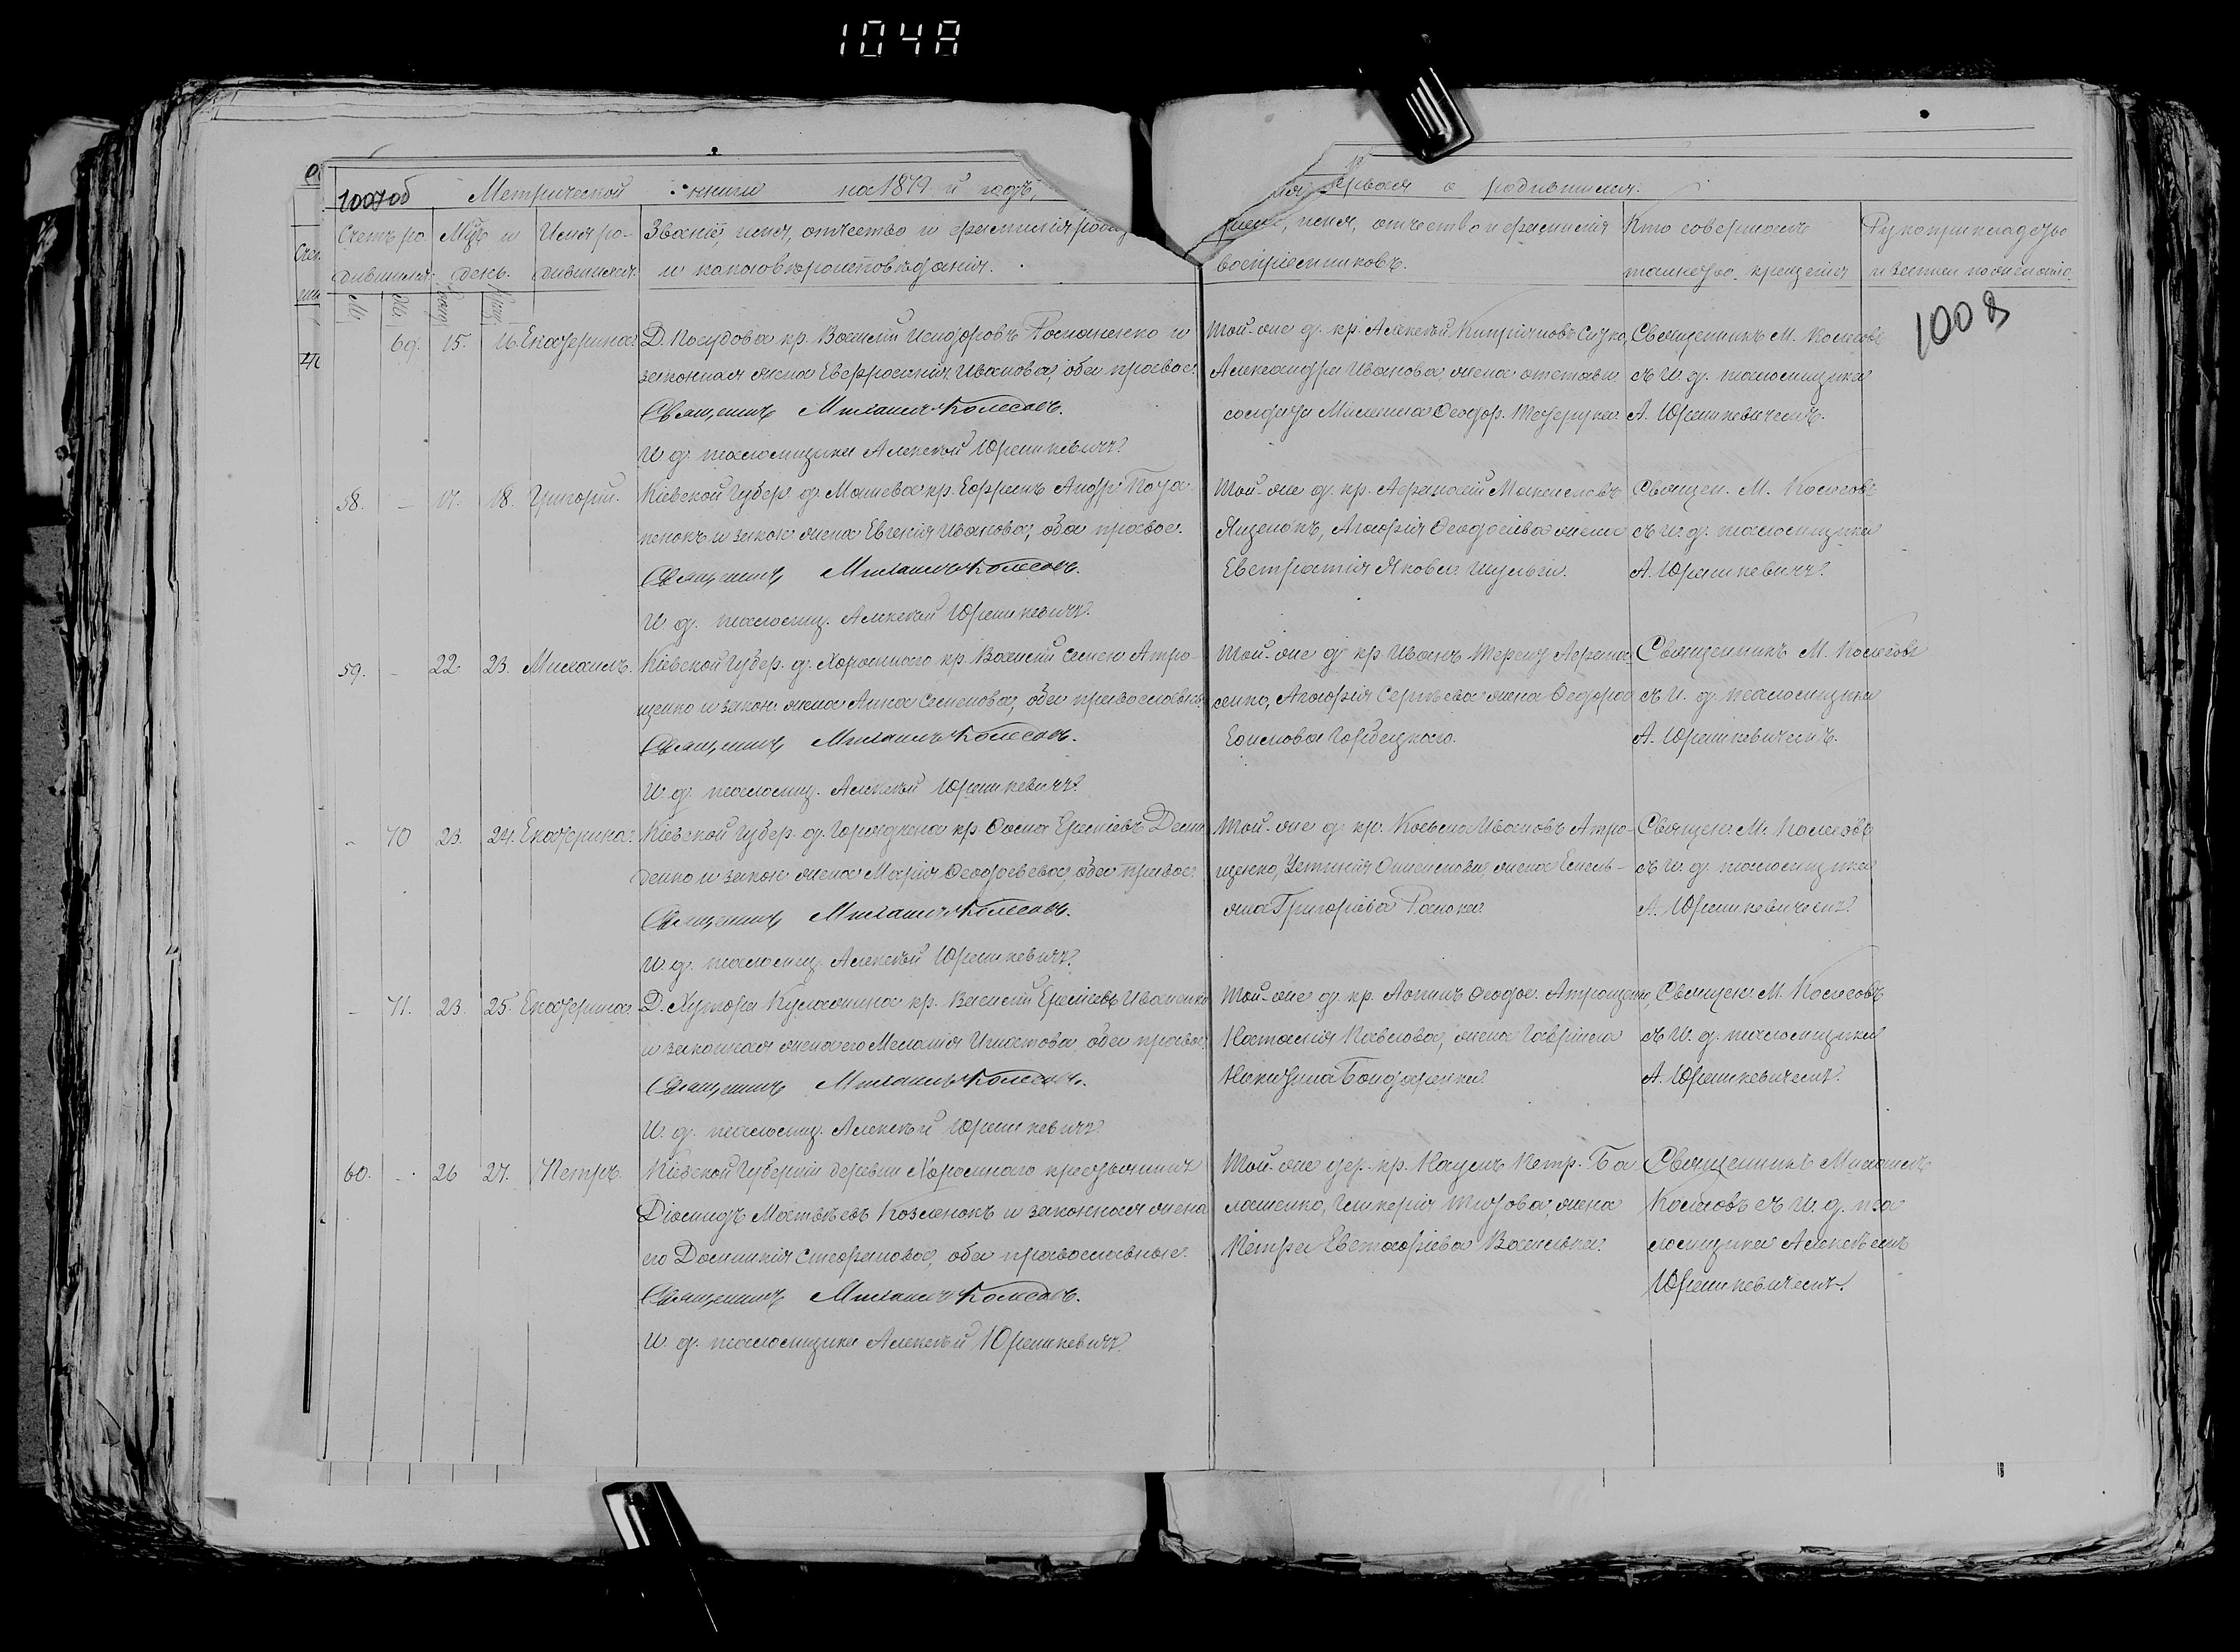 1048
1007об Метрической книги на 1879 й годъ,
первая о родившихся.
Счетъ ро
дившихся.
Мцъ и
день.
Имя ро-
дившихся.
Званіе, имя, отчество и фамилія
и какого вѣроисповѣданія.
имя, отчество и фамилія
воспріемниковъ.
Кто совершалъ
таинство крещенія
Рукоприкладство
1008
69. 15. 16. Екатерина. Д. Посудова кр. Василій Исидоровъ Романенко и
законная жена Евфросинія Иванова, оба правос.
Священникъ Михаилъ Колесовъ.
И. д. псаломщика Алексѣй Юрашкевичъ.
Той-же д. кр. Алексѣй Кипріяновъ
Александра Иванова, жена отставн.
солдата Ѳеодор.
Священникъ М. Колесовъ
съ И. д. псаломщика
А. Юрашкевичемъ.
58. - 17. 18. Григорій. Кіевской Губер. д. кр. Ефремъ Андр.
и закон. жена Евгенія Иванова, оба правос.
Священникъ Михаилъ Колесовъ.
И. д. псаломщ. Алексѣй Юрашкевичъ.
Той-же д. кр. Афанасій
Агафія Ѳеодосіева жена
Евстратія Яковл. Шульги.
Священ. М. Колесовъ
съ И. д. псаломщика
А. Юрашкевичъ.
59. - 22. 23. Михаилъ. Кіевской Губер. д. Хоромнаго кр. Василій Семен. Атро-
щенко и закон. жена Анна Семенова, оба православн.
Священникъ Михаилъ Колесовъ.
И. д. псаломщ. Алексѣй Юрашкевичъ.
Той-же д. кр. Иванъ Терент. Афана-
сенко, Агафія Сергѣева жена Ѳеодора
Священникъ М. Колесовъ
съ И. д. псаломщика
А. Юрашкевичемъ.
- 70 23. 24. Екатерина. Кіевской Губер. д. кр. Ѳома
денко и закон. жена Марія Ѳеодосьева, оба правос.
Священникъ Михаилъ Колесовъ.
И. д. псаломщ. Алексѣй Юрашкевичъ.
Той-же д. кр. Козьма Ивановъ Атро-
щенко, Устинія жена Емель-
яна Григорьева
Священ. М. Колесовъ
съ И. д. псаломщика
А. Юрашкевичемъ.
- 71. 23. 25. Екатерина. Д. Хутора кр. Василій Иваненко
и законная жена его Меланія Игнатова, оба правос.
Священникъ Михаилъ Колесовъ.
И. д. псаломщ. Алексѣй Юрашкевичъ.
Той-же д. кр. Ѳеодос. Атрощенко,
Наталія Павлова, жена Гавріила
Никитина Бондаренка.
Священ. М. Колесовъ
съ И. д. псаломщика
А. Юрашкевичемъ.
60. - 26 27. Петръ. Кіевской Губерніи деревни Хоромнаго крестьянинъ
Діомидъ Матвѣевъ Козленокъ и законная жена
его Домникія Стефанова, оба православные.
Священникъ Михаилъ Колесовъ.
И. д. псаломщика Алексѣй Юрашкевичъ.
Той-же дер. кр. Наумъ Петр. Ба-
лашенко, Гликерія Титова, жена
Петра Евстафіева
Священникъ Михаилъ
Колесовъ съ И. д. пса
ломщика Алексѣемъ
Юрашкевичемъ.